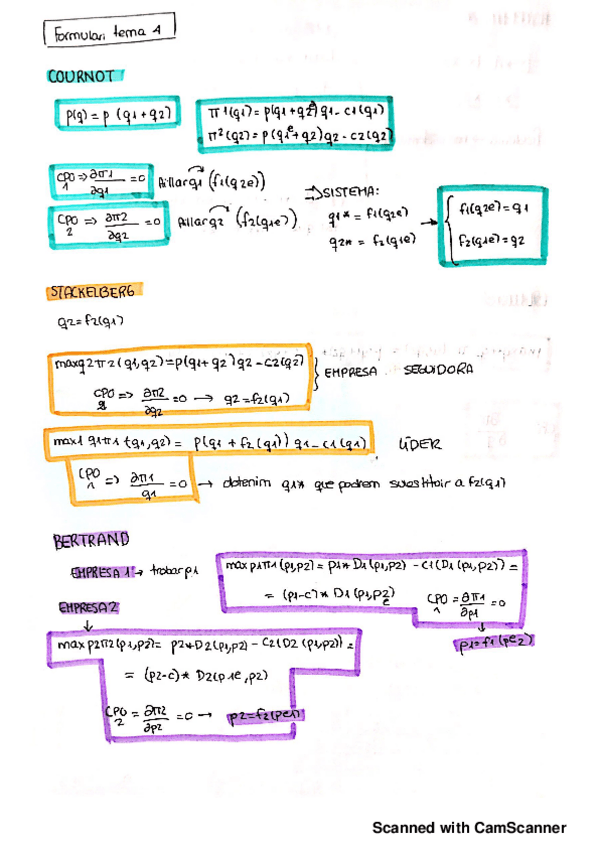 Formulari tema 4
COURNOT
p(q) = p (q1+q2)
π1(q1) = p(q1+q2e)q1 - c1(q1)
π2(q2) = p(q1e+q2)q2 - c2(q2)
CPO1 => ∂π1/∂q1 = 0 Aïllar q1 (f1(q2e))
CPO2 => ∂π2/∂q2 = 0 Aïllar q2 (f2(q1e))
=> SISTEMA:
q1* = f1(q2e)
q2* = f2(q1e)
→ { f1(q2e) = q1
f2(q1e) = q2
STACKELBERG
q2 = f2(q1)
max q2 π2 (q1, q2) = p(q1+q2)q2 - c2(q2)
CPO2 => ∂π2/∂q2 = 0 → q2 = f2(q1)
} EMPRESA SEGUIDORA
max1 q1π1 (q1,q2) = p(q1 + f2(q1)) q1 - c1(q1) LÍDER
CPO1 => ∂π1/q1 = 0 → obtenim q1* que podrem substituir a f2(q1)
BERTRAND
EMPRESA 1 → trobar p1
max p1π1 (p1,p2) = p1* D1(p1,p2) - C1(D1(p1,p2)) =
= (p1-c)* D1(p1,p2e)
CPO1 = ∂π1/∂p1 = 0
↓
p1 = f1(pe2)
EMPRESA 2
↓
max p2π2(p1,p2) = p2*D2(p1,p2) - C2(D2(p1,p2)) =
= (p2-c)* D2(p1e,p2)
CPO2 = ∂π2/∂p2 = 0 → p2=f2(pe1)
Scanned with CamScanner